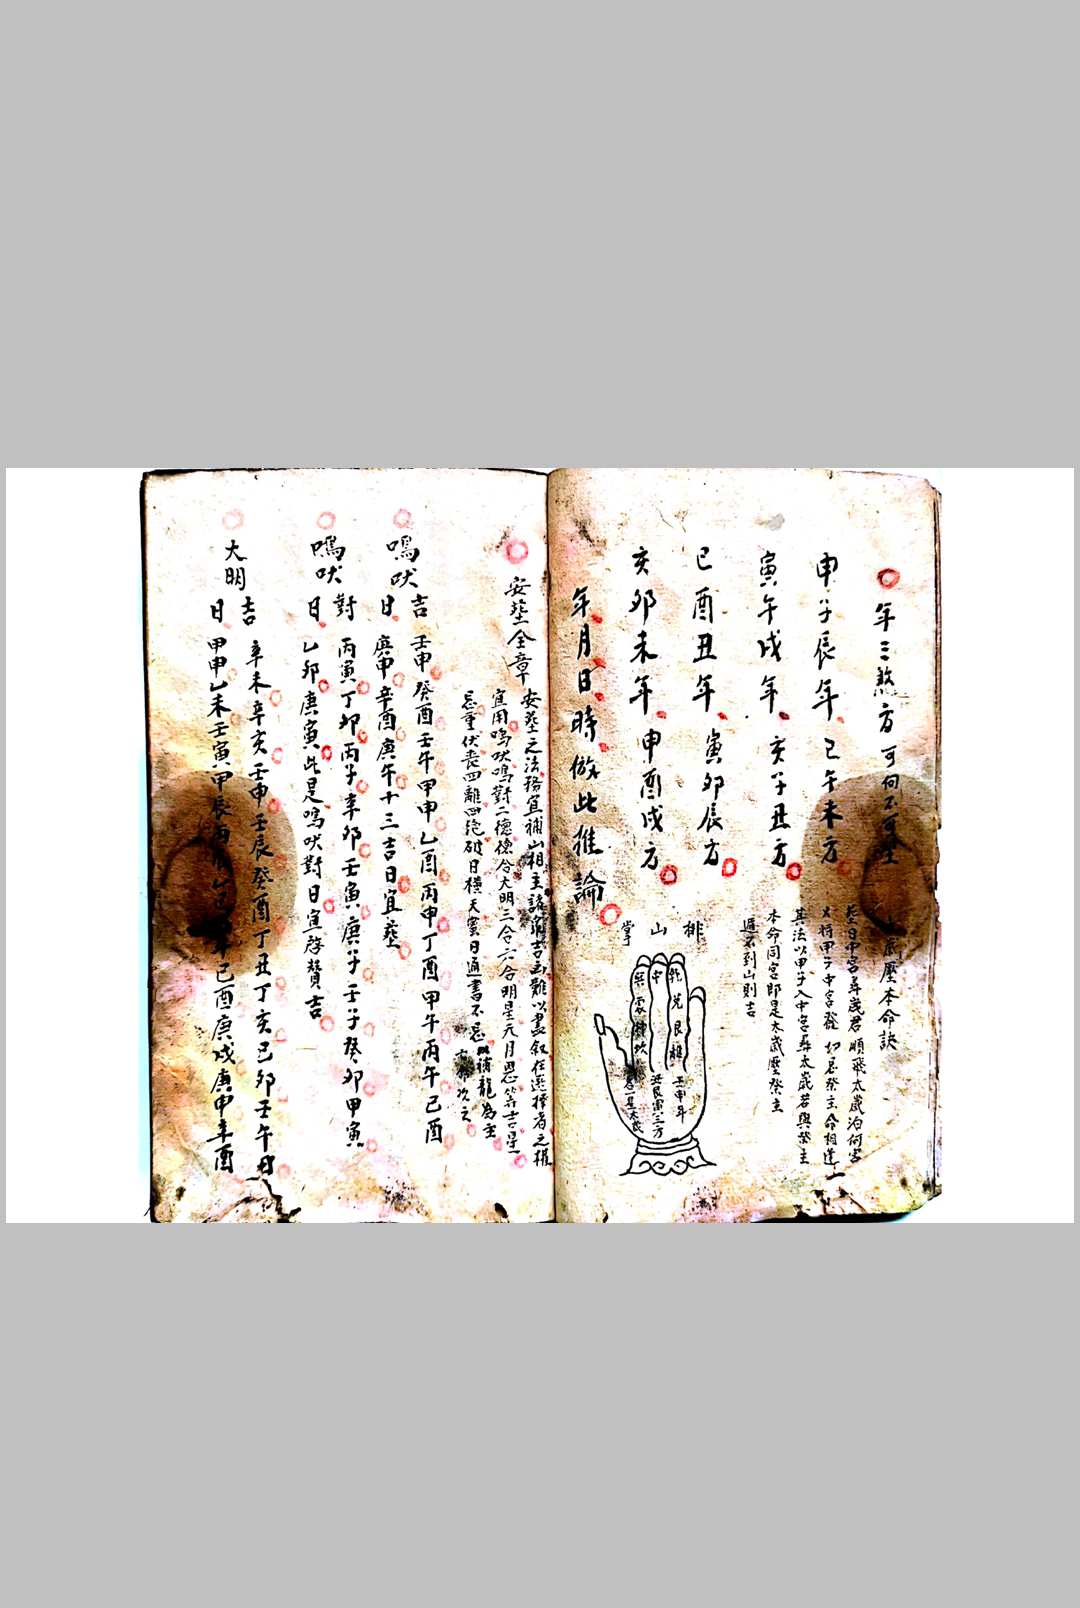 年三煞方可向不可坐
申子辰年巳午未方
寅午戌年亥子丑方
巳酉丑年寅卯辰方
亥卯未年申酉戌方
年月日時倣此推論
歲壓本命訣
中宮尋歲君順飛太歲泊何宮
將甲子中宮發切忌祭主命相逢
其法以甲子入中宮尋太歲若與祭主
本命同宮即是太歲壓祭主
遇不到山則吉
排山掌
乾兌艮離
中
巽震
坎
壬申年
丑艮寅三方
安塟全章
安塟之法務宜補山相主諸家吉凶難以盡叙在選擇者之權
宜用鳴吠鳴對二德德合大明三合六合明星天月恩等吉星
忌重伏喪四離四絕破日橫天
日通書不忌以補龍為主
次之
鳴吠吉日
壬申癸酉壬午甲申乙酉丙申丁酉甲午丙午己酉
庚申辛酉庚午十三吉日宜塟
鳴吠對日
丙寅丁卯丙子辛卯壬寅庚子壬子癸卯甲寅
乙卯庚寅此是鳴吠對日宜啓攢吉
大明吉日
辛未辛亥壬申壬辰癸酉丁丑丁亥己卯壬午
甲申乙未壬寅甲辰
己酉庚戌庚申辛酉